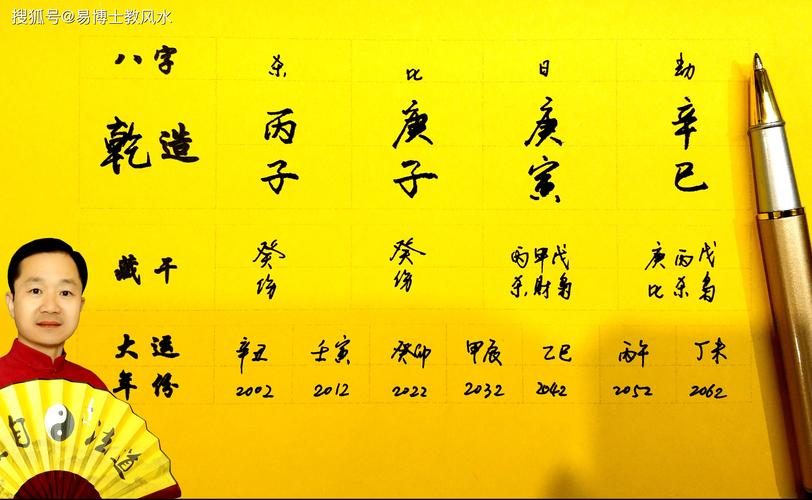 搜狐号@易博士教风水
八字 杀 比 日 劫
乾造 丙 庚 庚 辛
子 子 寅 巳
藏干 癸 癸 丙甲戊 庚丙戊
伤 伤 杀财枭 比杀枭
大运 辛丑 壬寅 癸卯 甲辰 乙巳 丙午 丁未
年份 2002 2012 2022 2032 2042 2052 2062
自 法道